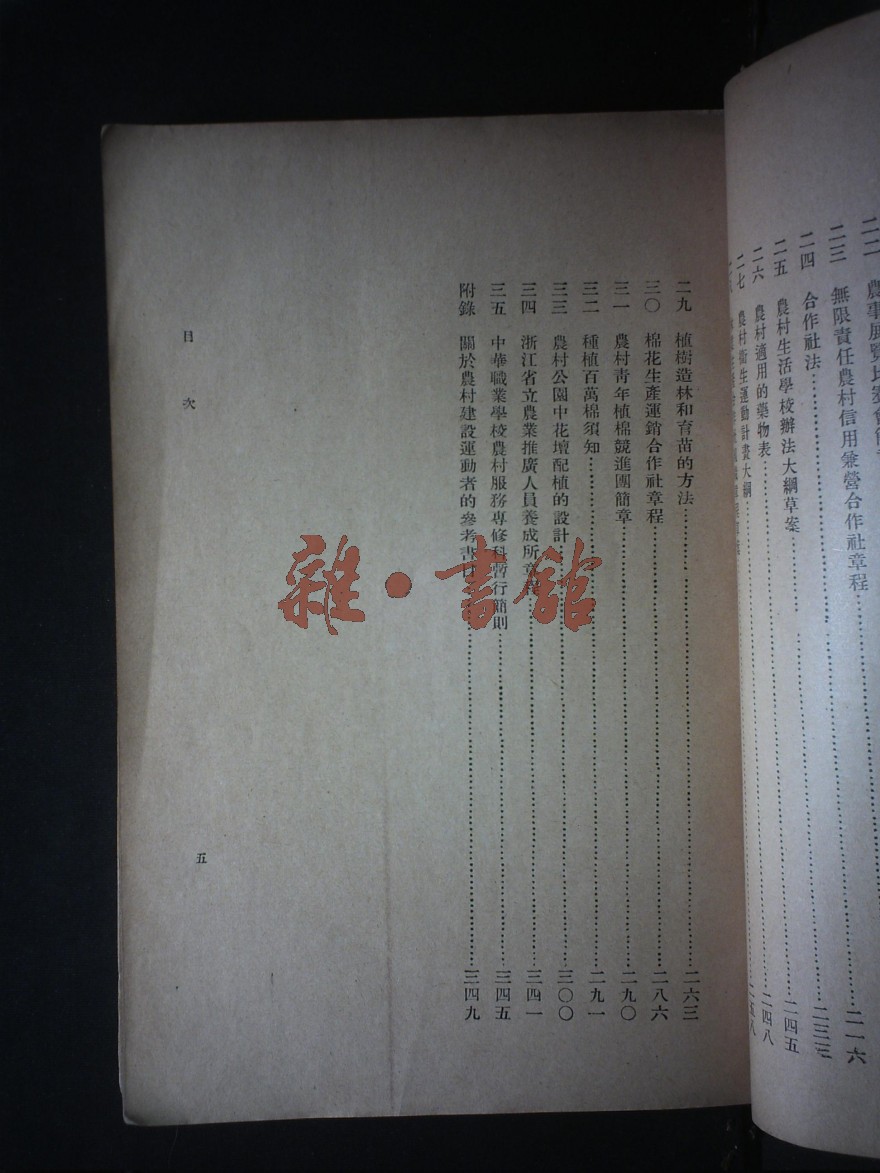 二二 農事展覽比賽會簡章
二三 無限責任農村信用兼營合作社章程⋯⋯二一六
二四 合作社法⋯⋯二三三
二五 農村生活學校辦法大綱草案⋯⋯二四五
二六 農村適用的藥物表⋯⋯二四八
二七 農村衞生運動計畫大綱⋯⋯二五八
二九 植樹造林和育苗的方法⋯⋯二六三
三〇 棉花生產運銷合作社章程⋯⋯二八六
三一 農村靑年植棉競進團簡章⋯⋯二九〇
三二 種植百萬棉須知⋯⋯二九一
三三 農村公園中花壇配植的設計⋯⋯三〇〇
三四 浙江省立農業推廣人員養成所章程⋯⋯三四一
三五 中華職業學校農村服務專修科暫行簡則⋯⋯三四五
附錄 關於農村建設運動者的參考書目⋯⋯三四九
目次
五
雜·書館